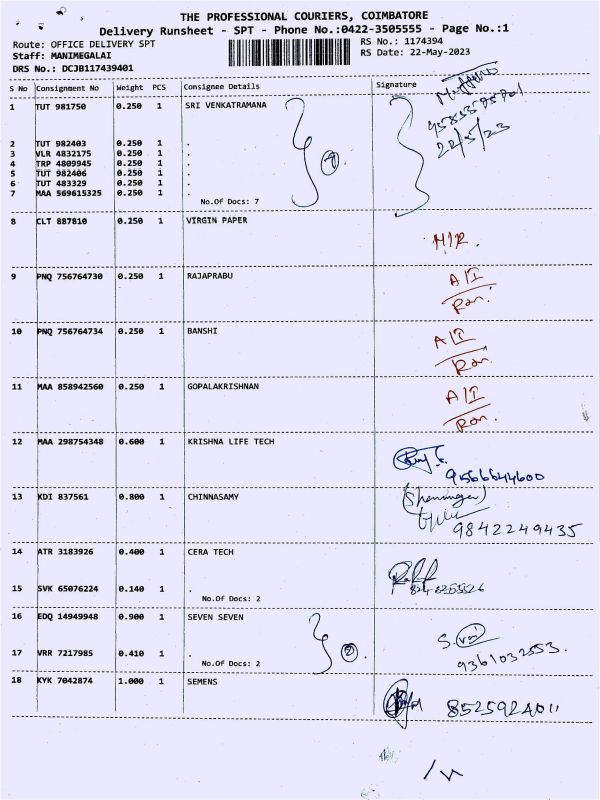 THE PROFESSIONAL COURIERS, COIMBATORE
Delivery Runsheet - SPT - Phone No.:0422-3505555 - Page No.:1
Route: OFFICE DELIVERY SPT
RS No.: 1174394
Staff: MANIMEGALAI
RS Date: 22-May-2023
DRS No.: DCJB117439401
S No Consignment No Weight PCS Consignee Details Signature
1 TUT 981750 0.250 1 SRI VENKATRAMANA
22/5/23
2 TUT 982403 0.250 1 .
3 VLR 4832175 0.250 1 .
4 TRP 4809945 0.250 1 .
5 TUT 982406 0.250 1 .
6 TUT 483329 0.250 1 .
7 MAA 569615325 0.250 1 .
No.Of Docs: 7
8 CLT 887810 0.250 1 VIRGIN PAPER
N/R.
9 PNQ 756764730 0.250 1 RAJAPRABU
A/I
10 PNQ 756764734 0.250 1 BANSHI
A/I
11 MAA 858942560 0.250 1 GOPALAKRISHNAN
A/I
12 MAA 298754348 0.600 1 KRISHNA LIFE TECH
9566644600
13 KDI 837561 0.800 1 CHINNASAMY
9842249435
14 ATR 3183926 0.400 1 CERA TECH
15 SVK 65076224 0.140 1 .
No.Of Docs: 2
16 EDQ 14949948 0.900 1 SEVEN SEVEN
17 VRR 7217985 0.410 1 .
2
9361032553.
No.Of Docs: 2
18 KYK 7042874 1.000 1 SEMENS
8525924011